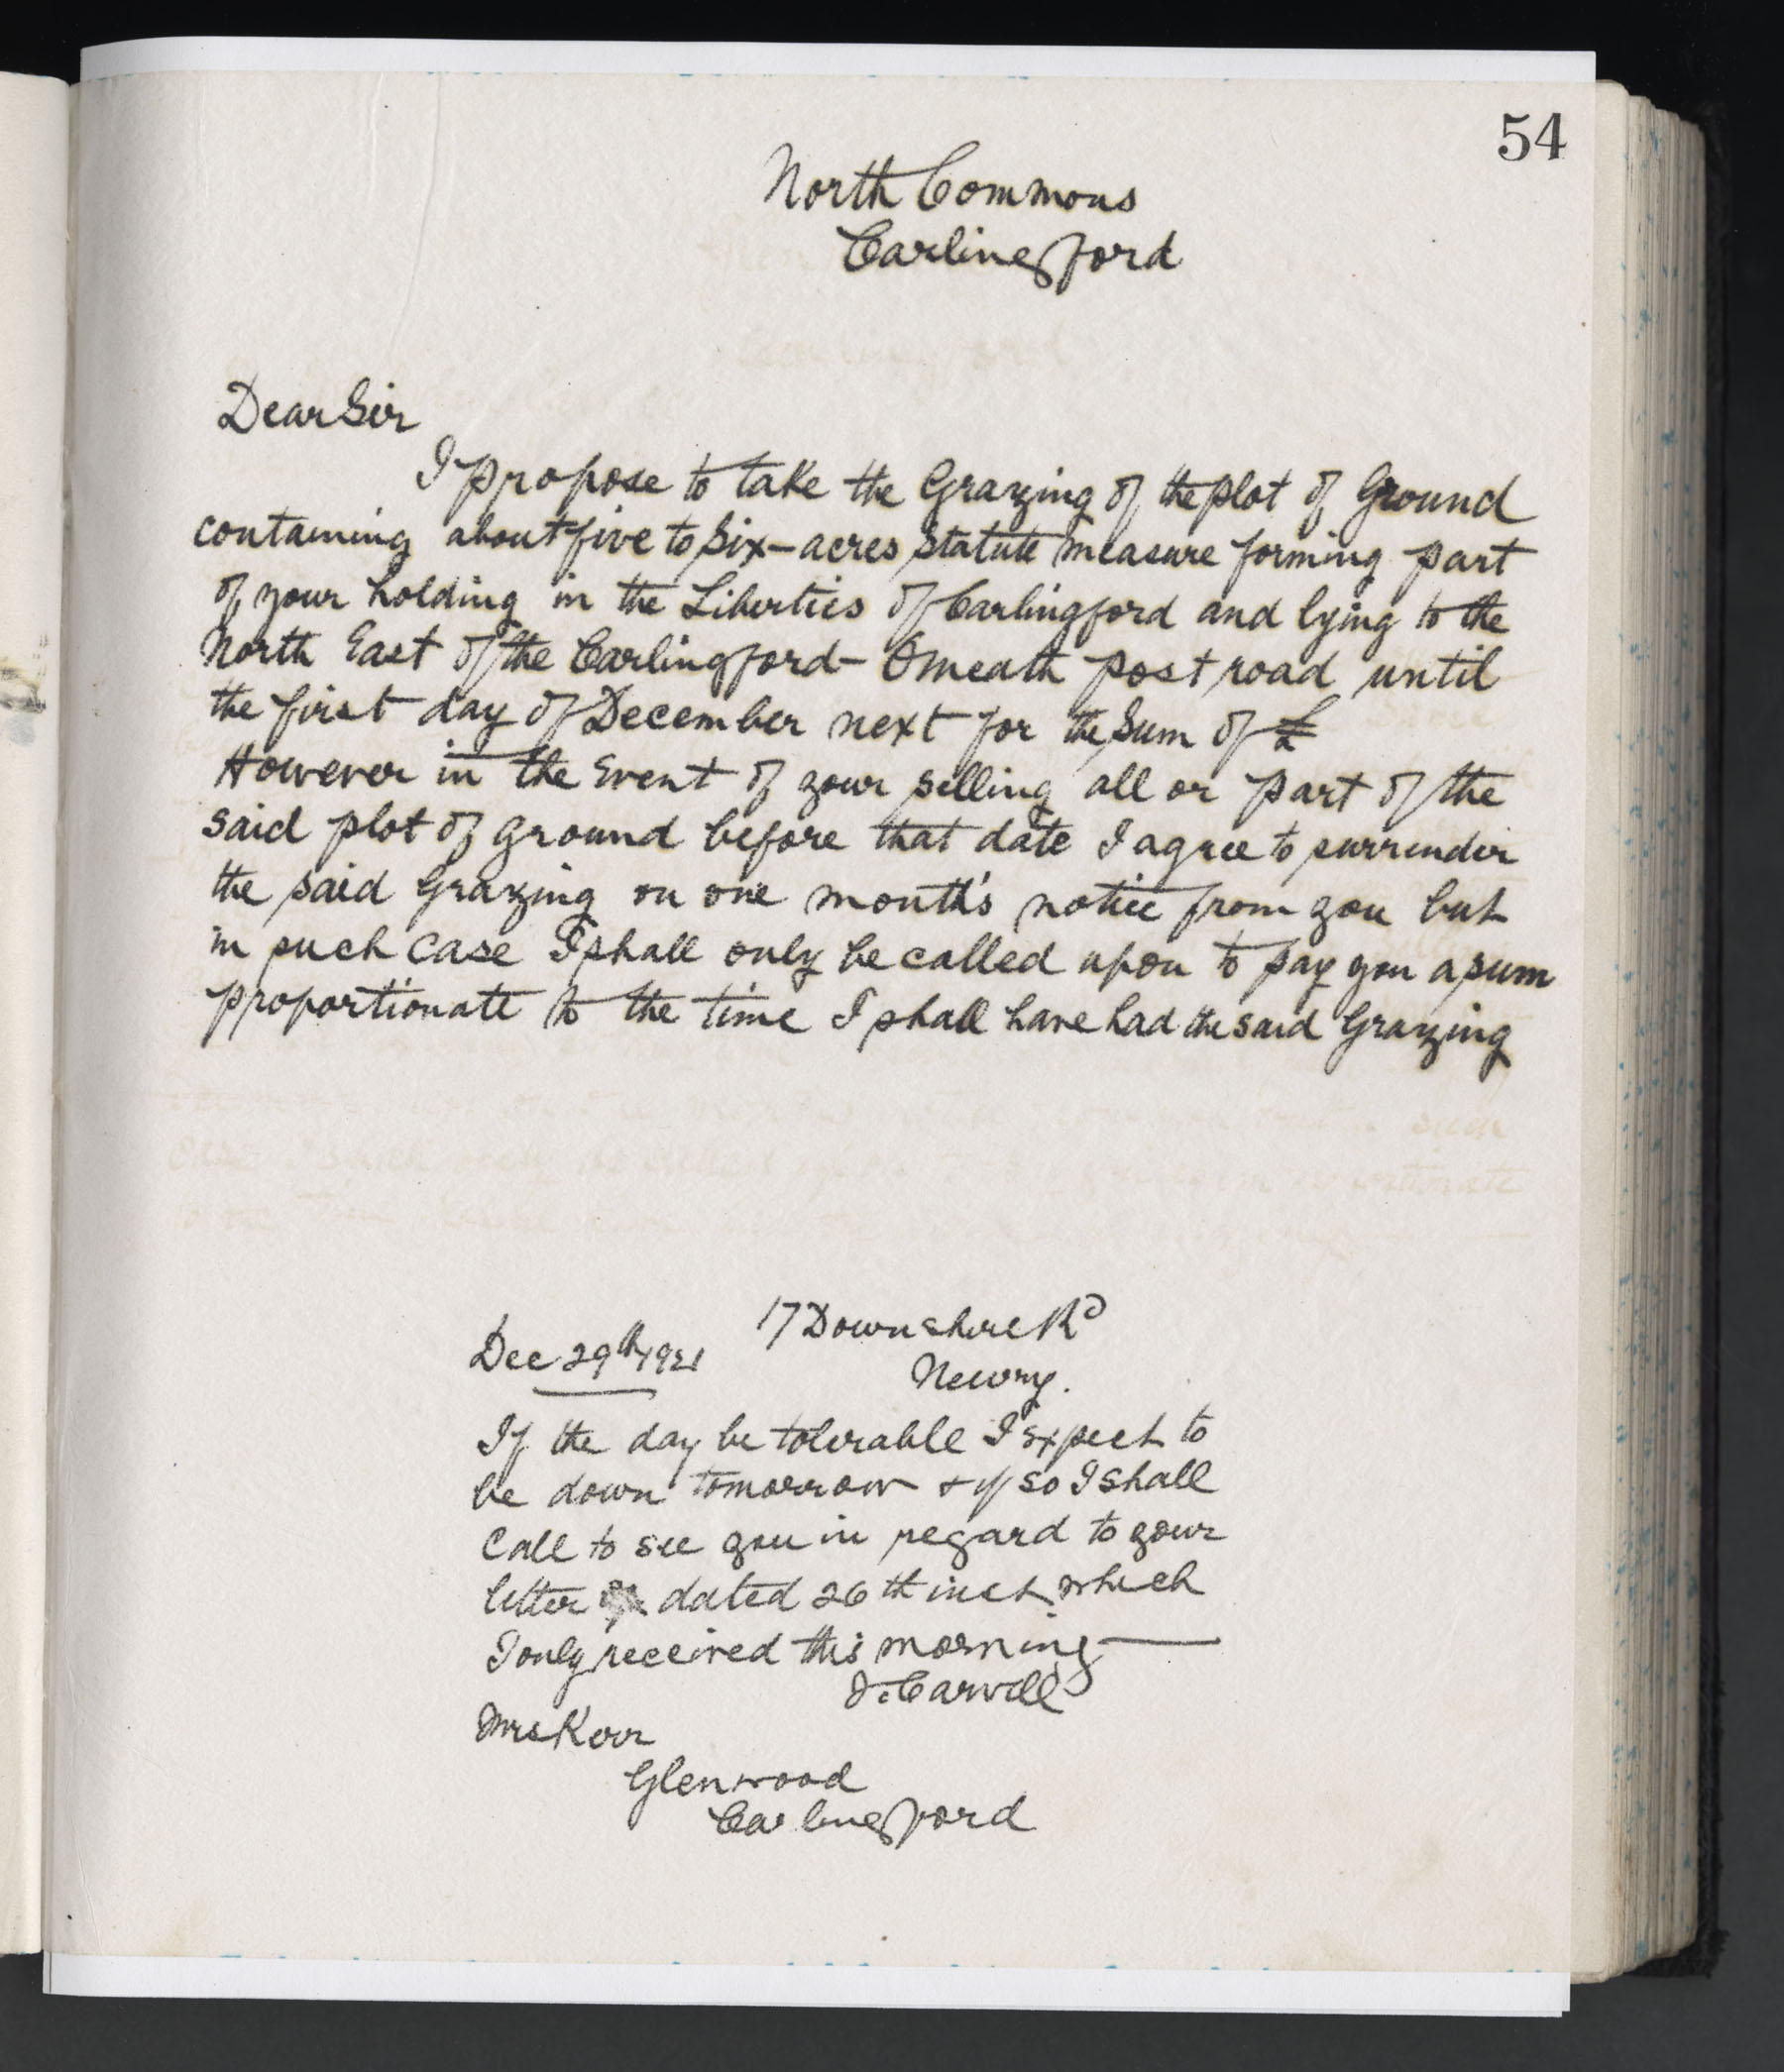 54
North Commons
Carlingford
Dear Sir
I propose to take the Grazing of the plot of Ground
containing about five to Six-acres Statute Measure forming part
of your holding in the Liberties of Carlingford and lying to the
North East of the Carlingford - Omeath post road until
the first day of December next for the Sum of £
However in the Event of your selling all or part of the
said plot of ground before that date I agree to surrender
the said Grazing on one month's notice from you but
in such case I shall only be called upon to pay you a sum
proportionate to the time I shall have had the said Grazing
17 Downshire Rd
Dec 29th 1921
Newry.
If the day be tolerable I expect to
be down tomorrow + if so I shall
Call to see you in regard to your
letter dated 26th inst which
I only received this morning —
J. Carvill
Mrs Kerr
Glenwood
Carlingford